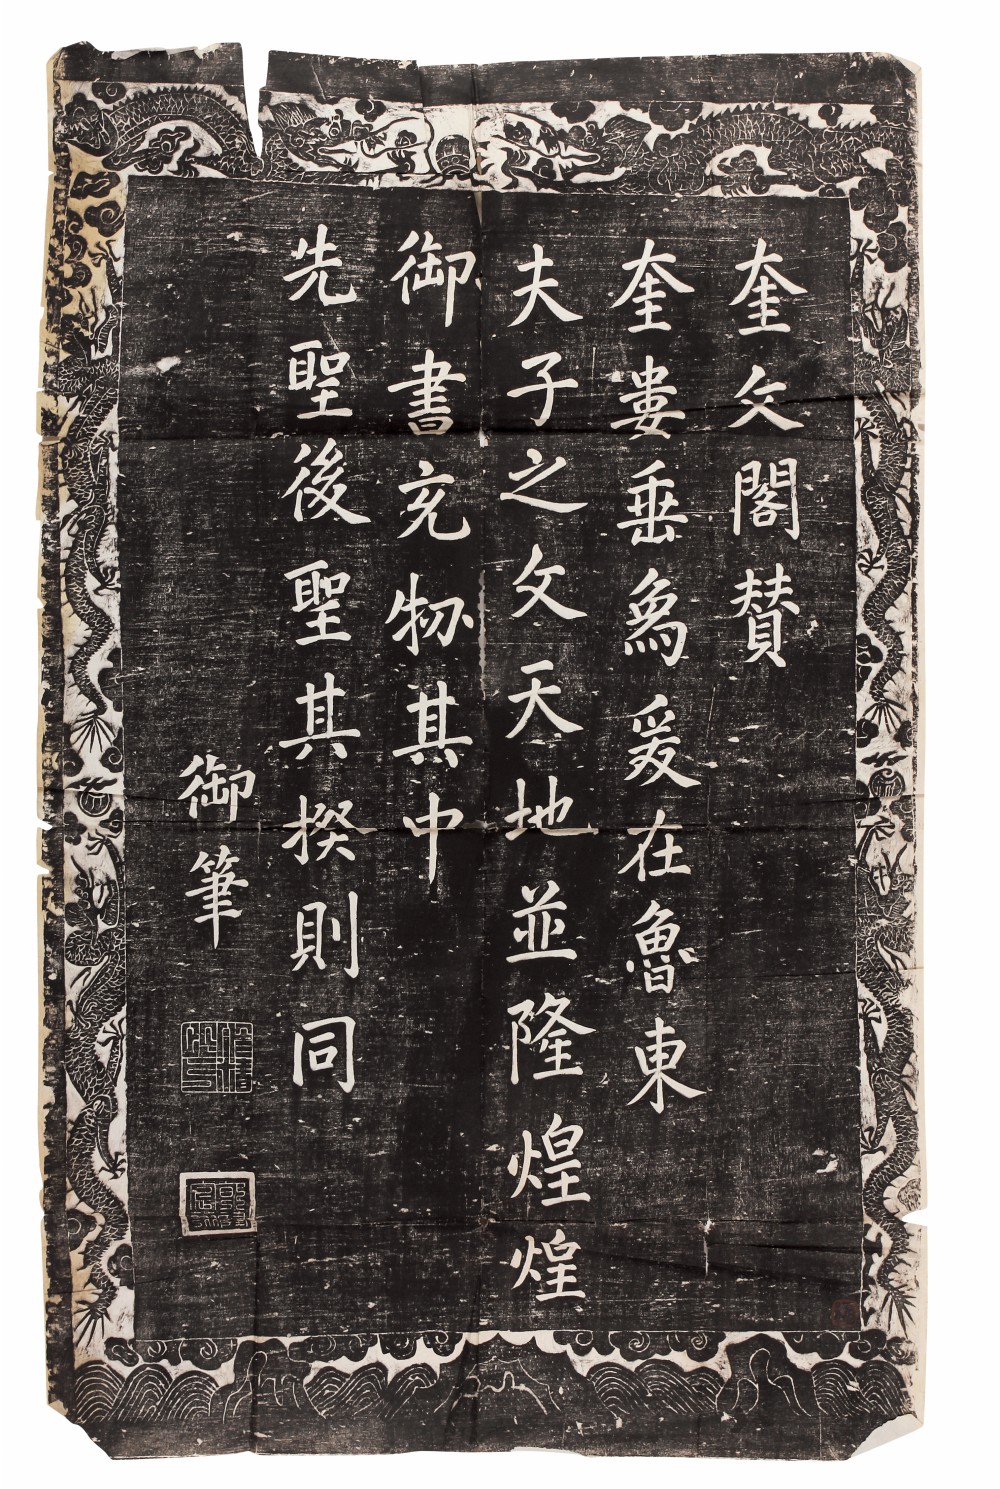 奎文閣賛
奎婁垂爲爰在魯東
夫子之文天地並隆煌煌
御書充牣其中
先聖後聖其揆則同
御筆